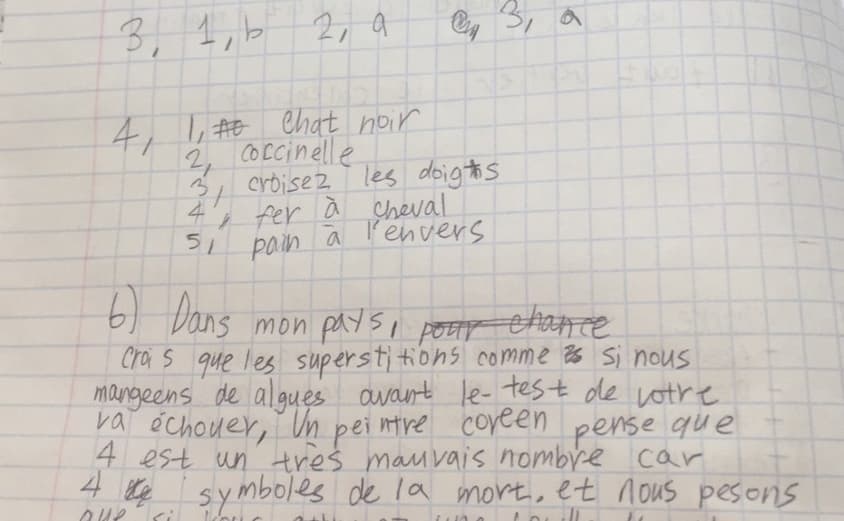 3, 1, b 2, a 3, a
4, 1, chat noir
2, coccinelle
3, croisez les doigts
4, fer à cheval
5, pain à l'envers
6) Dans mon pays, pour chance
crois que les superstitions comme si nous
mangeens de algues avant le-test de votre
va échouer, Un peintre coreen pense que
4 est un très mauvais nombre car
4 symboles de la mort. et nous pesons
que si